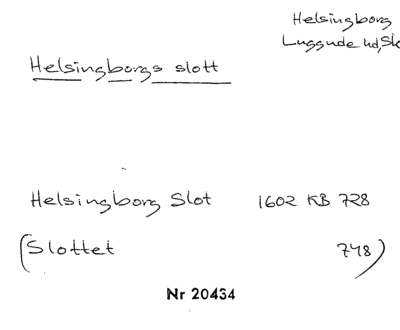 Helsingborg
Luggude hd, Sk
Helsingborgs slott
Helsingborg Slot 1602 KB 728
(Slottet 748)
Nr 20434